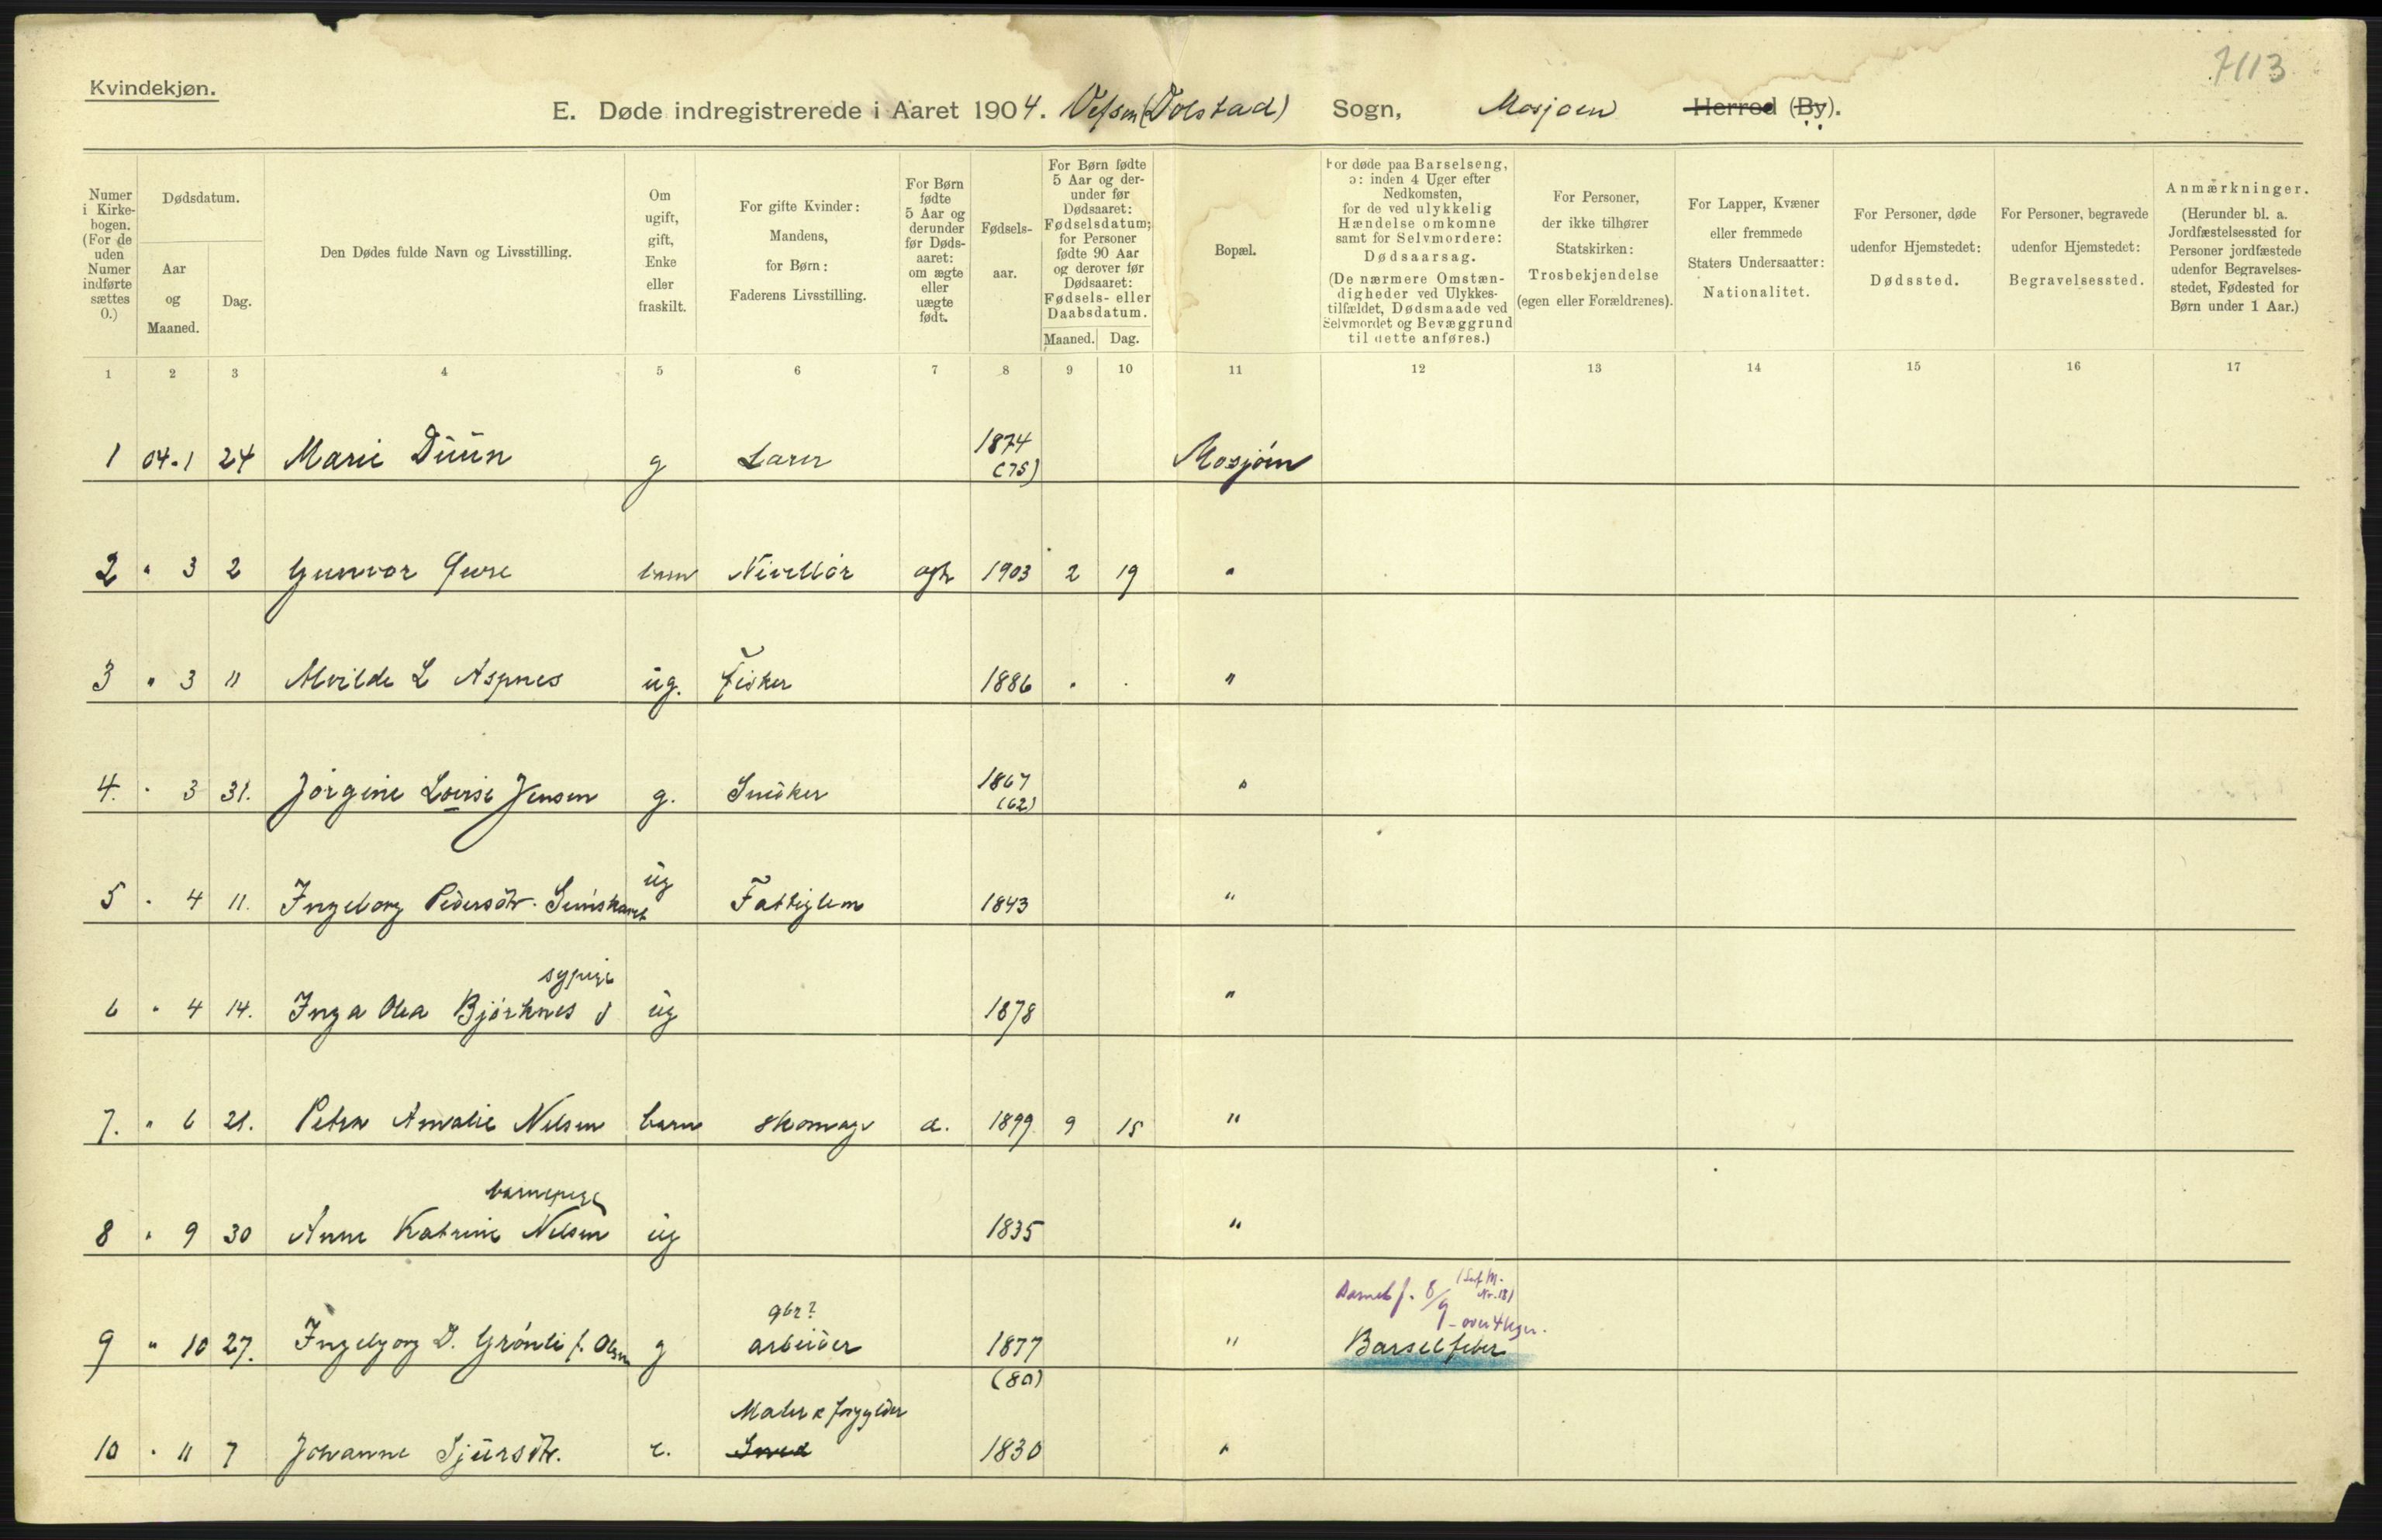 7113
Kvindekjøn.
E. Døde indregistrerede i Aaret 1904. Vefsen (Dolstad) Sogn, Mosjoen Herred (By).
Numer i Kirkebogen. (For de uden Numer indførte sættes 0.)
Dødsdatum.
Aar og Maaned.
Dag.
Den Dødes fulde Navn og Livsstilling.
Om ugift, gift, Enke eller fraskilt.
For gifte Kvinder: Mandens, for Børn: Faderens Livsstilling.
For Børn fødte 5 Aar og derunder før Dødsaaret: om ægte eller uægte født.
Fødselsaar.
For Børn fødte 5 Aar og derunder før Dødsaaret: Fødselsdatum; for Personer fødte 90 Aar og derover før Dødsaaret: Fødsels- eller Daabsdatum.
Maaned. Dag.
Bopæl.
For døde paa Barselseng, ɔ: inden 4 Uger efter Nedkomsten, for de ved ulykkelig Hændelse omkomne samt for Selvmordere: Dødsaarsag. (De nærmere Omstændigheder ved Ulykkestilfældet, Dødsmaade ved Selvmordet og Bevæggrund til dette anføres.)
For Personer, der ikke tilhører Statskirken: Trosbekjendelse (egen eller Forældrenes).
For Lapper, Kvæner eller fremmede Staters Undersaatter: Nationalitet.
For Personer, døde udenfor Hjemstedet: Dødssted.
For Personer, begravede udenfor Hjemstedet: Begravelsessted.
Anmærkninger. (Herunder bl. a. Jordfæstelsessted for Personer jordfæstede udenfor Begravelsesstedet, Fødested for Børn under 1 Aar.)
1 2 3 4 5 6 7 8 9 10 11 12 13 14 15 16 17
1 04.1 24 Marie Duun g Lærer 1874 (75) Mosjöen
2 " 3 2 Gunvor barn ægte 1903 2 19 "
3 " 3 11 Alvilde L Aspnes ug. Fisker 1886 "
4. " 3 31. Jörgine Lovise Jensen g. Snedker 1867 (62) "
5 " 4 11. Ingeborg Pedersdtr. ug Fattiglem 1843 "
sypige
6 " 4 14. Inga Olea Björknes ug 1878 "
7. " 6 21. Petra Amalie Nilsen barn skomager æ. 1899 9 15 "
barnepige
8 " 9 30 Anne Katrine Nilsen ug 1835 "
gbr?
Barnet f. 8/9 - over 4 uger.
9 " 10 27. Ingebjorg D. Grönli f. Olsen g arbeider 1877 (80) " Barselfeber
Maler & forgylder
10 " 11 7 Johanne Sjursdtr. e. Smed 1830 "